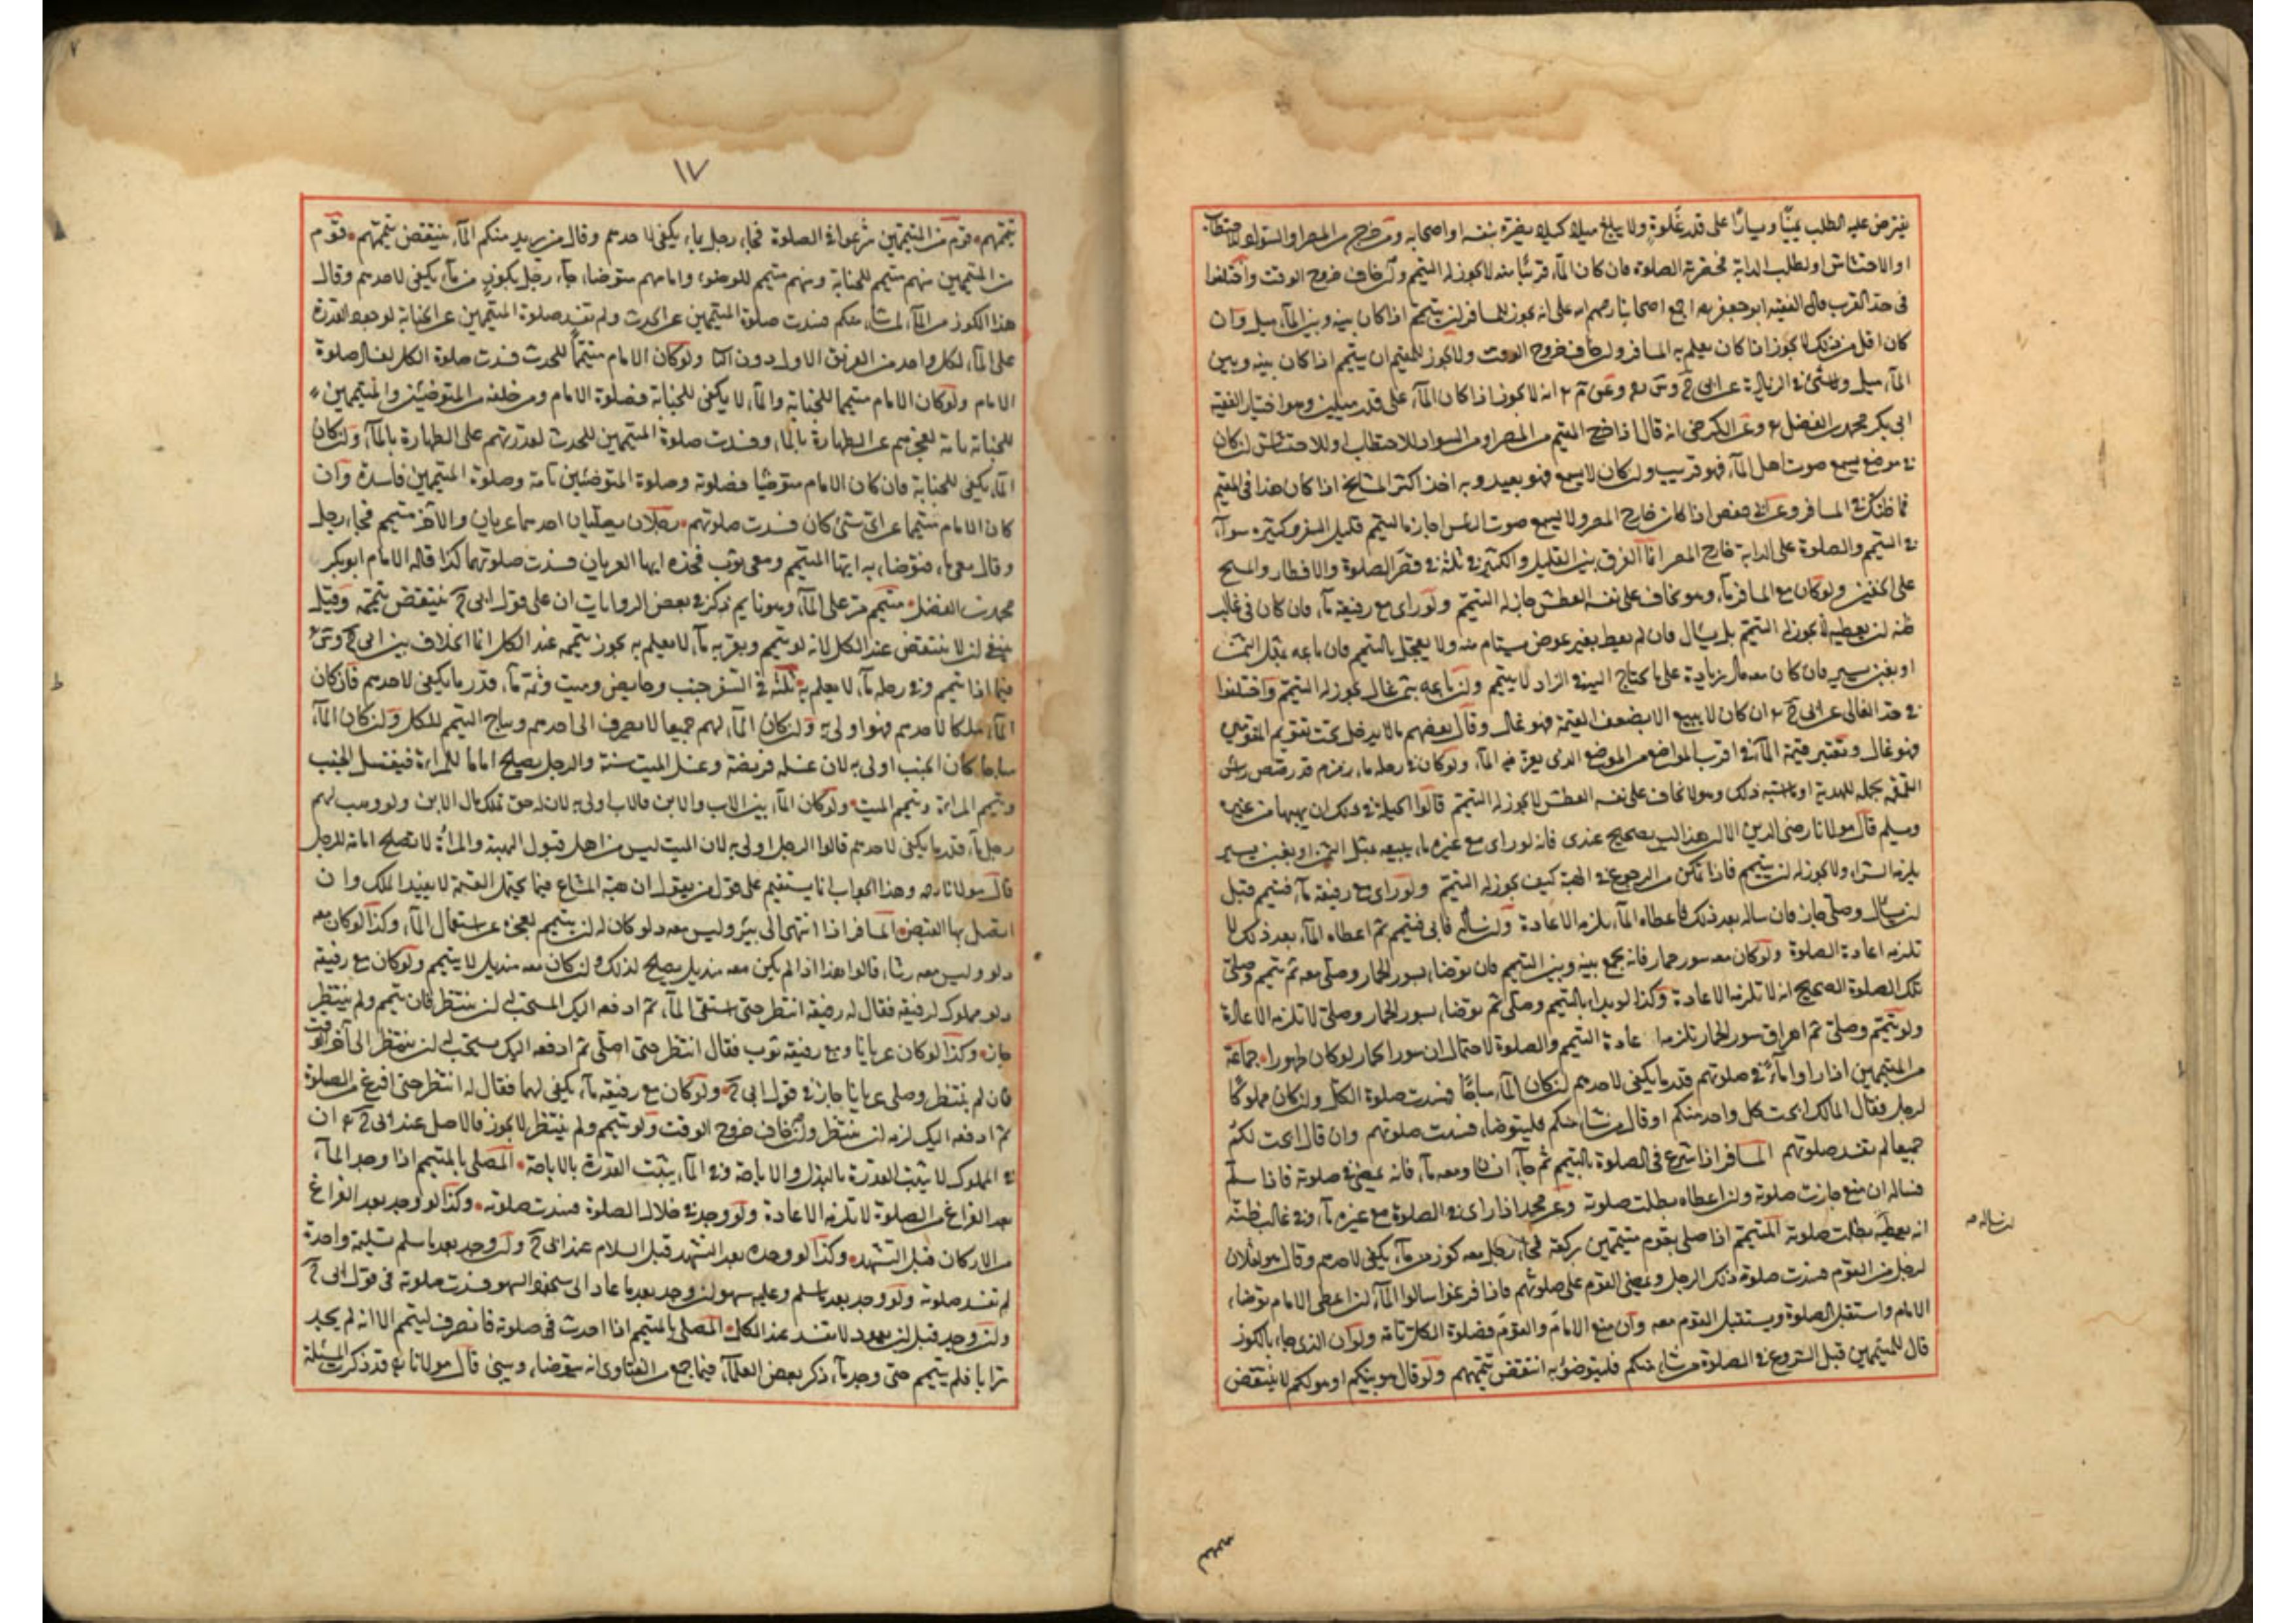 يفترض عليه الطلب يمينًا ويسارًا على قدر غلوة ولا يبلغ ميلا كيلا يضره بنفسه او اصحابه ومن خرج من المصر او السواد للاحتطاب
او الاحتشاش او لطلب الدابة فحضرته الصلوة فان كان المآء قريبًا منه لا يجوز له التيمم وان خاف خروج الوقت واختلفوا
فى حد القرب قال الفقيه ابو جعفر رحمه اجمع اصحابنا رحمهم الله على انه يجوز للمسافر ان يتيمم اذا كان بينه وبين المآء ميل وان
كان اقل من ذلك لا يجوز اذا كان يعلم به المسافر وان خاف خروج الوقت ولا يجوز للمقيم ان يتيمم اذا كان بينه وبين
المآء ميل ولا شئ فى الزيادة عن ابى ح وس وعن م انه لا يجوز اذا كان المآء على قدر ميلين وهو اختيار الفقيه
ابى بكر محمد بن الفضل وعن الكرخى انه قال اذا خرج المقيم من المصر او من السواد للاحتطاب او للاحتشاش ان كان
فى موضع يسمع صوت اهل المآء فهو قريب وان كان لا يسمع فهو بعيد وبه اخذ اكثر المشايخ اذا كان هذا فى المقيم
فما ظنك فى المسافر وعن ابى حفص اذا كان خارج المصر ولا يسمع صوت الناس اجازنا التيمم قليل السفر وكثيره سوآء
فى التيمم والصلوة على الدابة خارج المصر انما الفرق بين القليل والكثير فى ثلثة فى قصر الصلوة والافطار والمسح
على الخفين ولو كان مع المسافر مآء وهو يخاف على نفسه العطش جاز له التيمم ولو راى مع رفيقه مآء فان كان فى غالب
ظنه ان يعطيه لا يجوز له التيمم بل يسأل فان لم يعط بغير عوض يستام منه ولا يعجل بالتيمم فان باعه بمثل الثمن
او بغبن يسير فان كان معه مال زيادة على ما يحتاج اليه فى الزاد لا يتيمم وان باعه بثمن غال يجوز له التيمم واختلفوا
فى حد الغالى عن ابى ح ان كان لا يبيع الا بضعف القيمة فهو غال وقال بعضهم ما لا يدخل تحت تقويم المقومين
فهو غال وتعتبر قيمة المآء فى اقرب المواضع من الموضع الذى يعز فيه المآء ولو كان فى رحله ماء زمزم قد رصص راس
القمقمة يحمله للهدية او ما اشبه ذلك وهو لا يخاف على نفسه العطش لا يجوز له التيمم قالوا الحيلة فى ذلك ان يهبها من غيره
ويسلم قال مولانا رضى الدين الا ان هذا ليس بصحيح عندى فانه لو راى مع غيره ماء يبيعه بمثل الثمن او بغبن يسير
يلزمه الشراء ولا يجوز له ان يتيمم فاذا تمكن من الرجوع فى الهبة كيف يجوز له التيمم ولو راى مع رفيقه مآء فتيمم قبل
ان يسأل وصلى جاز فان ساله بعد ذلك فاعطاه المآء يلزمه الاعادة وان سأله فابى فتيمم ثم اعطاه المآء بعد ذلك لا
تلزمه اعادة الصلوة ولو كان معه سور حمار فانه يجمع بينه وبين التيمم فان توضا بسور الحمار وصلى معه ثم تيمم وصلى
تلك الصلوة الصحيح انه لا تلزمه الاعادة وكذا لو بدا بالتيمم وصلى ثم توضا بسور الحمار وصلى لا تلزمه الاعادة
ولو تيمم وصلى ثم اهراق سور الحمار تلزمه اعادة التيمم والصلوة لاحتمال ان سور الحمار لو كان طهورا جماعة
من المتيممين اذا راوا مآء فى صلوتهم قدر ما يكفى لاحدهم ان كان المآء مباحًا فسدت صلوة الكل وان كان مملوكًا
لرجل فقال المالك ابحت لكل واحد منكم او قال من شاء منكم فليتوضا فسدت صلوتهم وان قال ابحت لكم
جميعا لم تفسد صلوتهم المسافر اذا شرع فى الصلوة بالتيمم ثم جآء انسان ومعه مآء فانه يمضى فى صلوته فاذا سلم
فساله ان منع جازت صلوته وان اعطاه بطلت صلوته وعن محمد اذا راى فى الصلوة مع غيره مآء وفى غالب ظنه
انه يعطيه بطلت صلوته المتيمم اذا صلى بقوم متيممين ركعة فجآء رجل معه كوز من مآء يكفى لاحدهم وقال هو لفلان
لرجل من القوم فسدت صلوة ذلك الرجل ويمضى القوم على صلوتهم فاذا فرغوا سالوا المآء ان اعطى الامام توضا
الامام واستقبل الصلوة ويستقبل القوم معه وان منع الامام والقوم فصلوة الكل تامة ولو ان الذى جاء بالكوز
قال للمتيممين قبل الشروع فى الصلوة من شاء منكم فليتوضؤ به انتقض تيممهم ولو قال هو بينكم او هو لكم لا ينتقض
ان ساله صح
١٧
تيممهم قوم من المتيممين شرعوا فى الصلوة فجاء رجل بماء يكفى لاحدهم وقال من يريد منكم المآء ينتقض تيممهم قوم
من المتيممين منهم متيمم للجنابة ومنهم متيمم للوضوء وامامهم متوضا جآء رجل بكوز من مآء يكفى لاحدهم وقال
هذا الكوز من المآء لمن شاء منكم فسدت صلوة المتيممين عن الحدث ولم تفسد صلوة المتيممين عن الجنابة لوجود القدرة
على المآء لكل واحد من الفريق الاول دون الثانى ولو كان الامام متيممًا للحدث فسدت صلوة الكل لفساد صلوة
الامام ولو كان الامام متيمما للجنابة والمآء لا يكفى للجنابة فصلوة الامام ومن خلفه من المتوضئين والمتيممين
للجنابة تامة لعجزهم عن الطهارة بالماء وفسدت صلوة المتيممين للحدث لقدرتهم على الطهارة بالمآء وان كان
المآء يكفى للجنابة فان كان الامام متوضيا فصلوته وصلوة المتوضئين تامة وصلوة المتيممين فاسدة وان
كان الامام متيمما عن اى شئ كان فسدت صلوتهم رجلان يصليان احدهما عريان والآخر متيمم فجاء رجل
وقال معى ماء فتوضا به ايها المتيمم ومعى ثوب فخذه ايها العريان فسدت صلوتهما كذا قاله الامام ابو بكر
محمد بن الفضل متيمم مر على المآء وهو نايم ذكر فى بعض الروايات ان على قول ابى ح ينتقض تيممه وقيل
ينبغى ان لا ينتقض عند الكل لانه لو تيمم وبقربه مآء لا يعلم به يجوز تيممه عند الكل انما الخلاف بين ابى ح وس
فيما اذا تيمم وفى رحله مآء لا يعلم به ثلثة فى السفر جنب وحايض وميت وثمة مآء قدر ما يكفى لاحدهم فان كان
المآء ملكا لاحدهم فهو اولى به وان كان المآء لهم جميعا لا يصرف الى احدهم ويباح التيمم للكل وان كان المآء
مباحا كان الجنب اولى به لان غسله فريضة وغسل الميت سنة والرجل يصلح اماما للمراءة فيغتسل الجنب
وتتيمم المراءة وييمم الميت ولو كان المآء بين الاب والابن فالاب اولى به لان له حق تملك مال الابن ولو وهب لهم
رجل مآء قدر ما يكفى لاحدهم قالوا الرجل اولى به لان الميت ليس من اهل قبول الهبة والمرأة لا تصلح امامة للرجل
قال مولانا رحمه وهذا الجواب انما يستقيم على قول من يقول ان هبة المشاع فيما يحتمل القسمة لا يفيد الملك وان
اتصل بها القبض المسافر اذا انتهى الى بئر وليس معه دلو كان له ان يتيمم لعجزه عن استعمال المآء وكذا لو كان معه
دلو وليس معه رشاء قالوا هذا اذا لم يكن معه منديل يصلح لذلك وان كان معه منديل لا يتيمم ولو كان مع رفيقه
دلو مملوك لرفيقه فقال له رفيقه انتظر حتى استقى المآء ثم ادفعه اليك المستحب له ان ينتظر فان تيمم ولم ينتظر
جاز وكذا لو كان عريانا ومع رفيقه ثوب فقال انتظر حتى اصلى ثم ادفعه اليك يستحب له ان ينتظر الى آخر الوقت
فان لم ينتظر وصلى عريانا جاز فى قول ابى ح ولو كان مع رفيقه مآء يكفى لهما فقال له انتظر حتى افرغ من الصلوة
ثم ادفعه اليك لزمه ان ينتظر وان خاف خروج الوقت ولو تيمم ولم ينتظر لا يجوز فالاصل عند ابى ح ان
فى المملوك لا يثبت القدرة بالبذل والاباحة وفى المآء يثبت القدرة بالاباحة المصلى بالتيمم اذا وجد المآء
بعد الفراغ من الصلوة لا تلزمه الاعادة ولو وجد فى خلال الصلوة فسدت صلوته وكذا لو وجد بعد الفراغ
من الاركان قبل التشهد وكذا لو وجده بعد التشهد قبل السلام عند ابى ح ولو وجد بعد ما سلم تسليمة واحدة
لم تفسد صلوته ولو وجد بعد ما سلم وعليه سهو ان وجد بعد ما عاد الى سجود السهو فسدت صلوته فى قول ابى ح
وان وجد قبل ان يعود لا تفسد عند الكل المصلى بالتيمم اذا احدث فى صلوته فانصرف ليتيمم الا انه لم يجد
ترابا فلم يتيمم حتى وجد مآء ذكر بعض العلمآء فيما جمع من الفتاوى انه يتوضا ويبنى قال مولانا رحمه قد ذكرت المسئلة